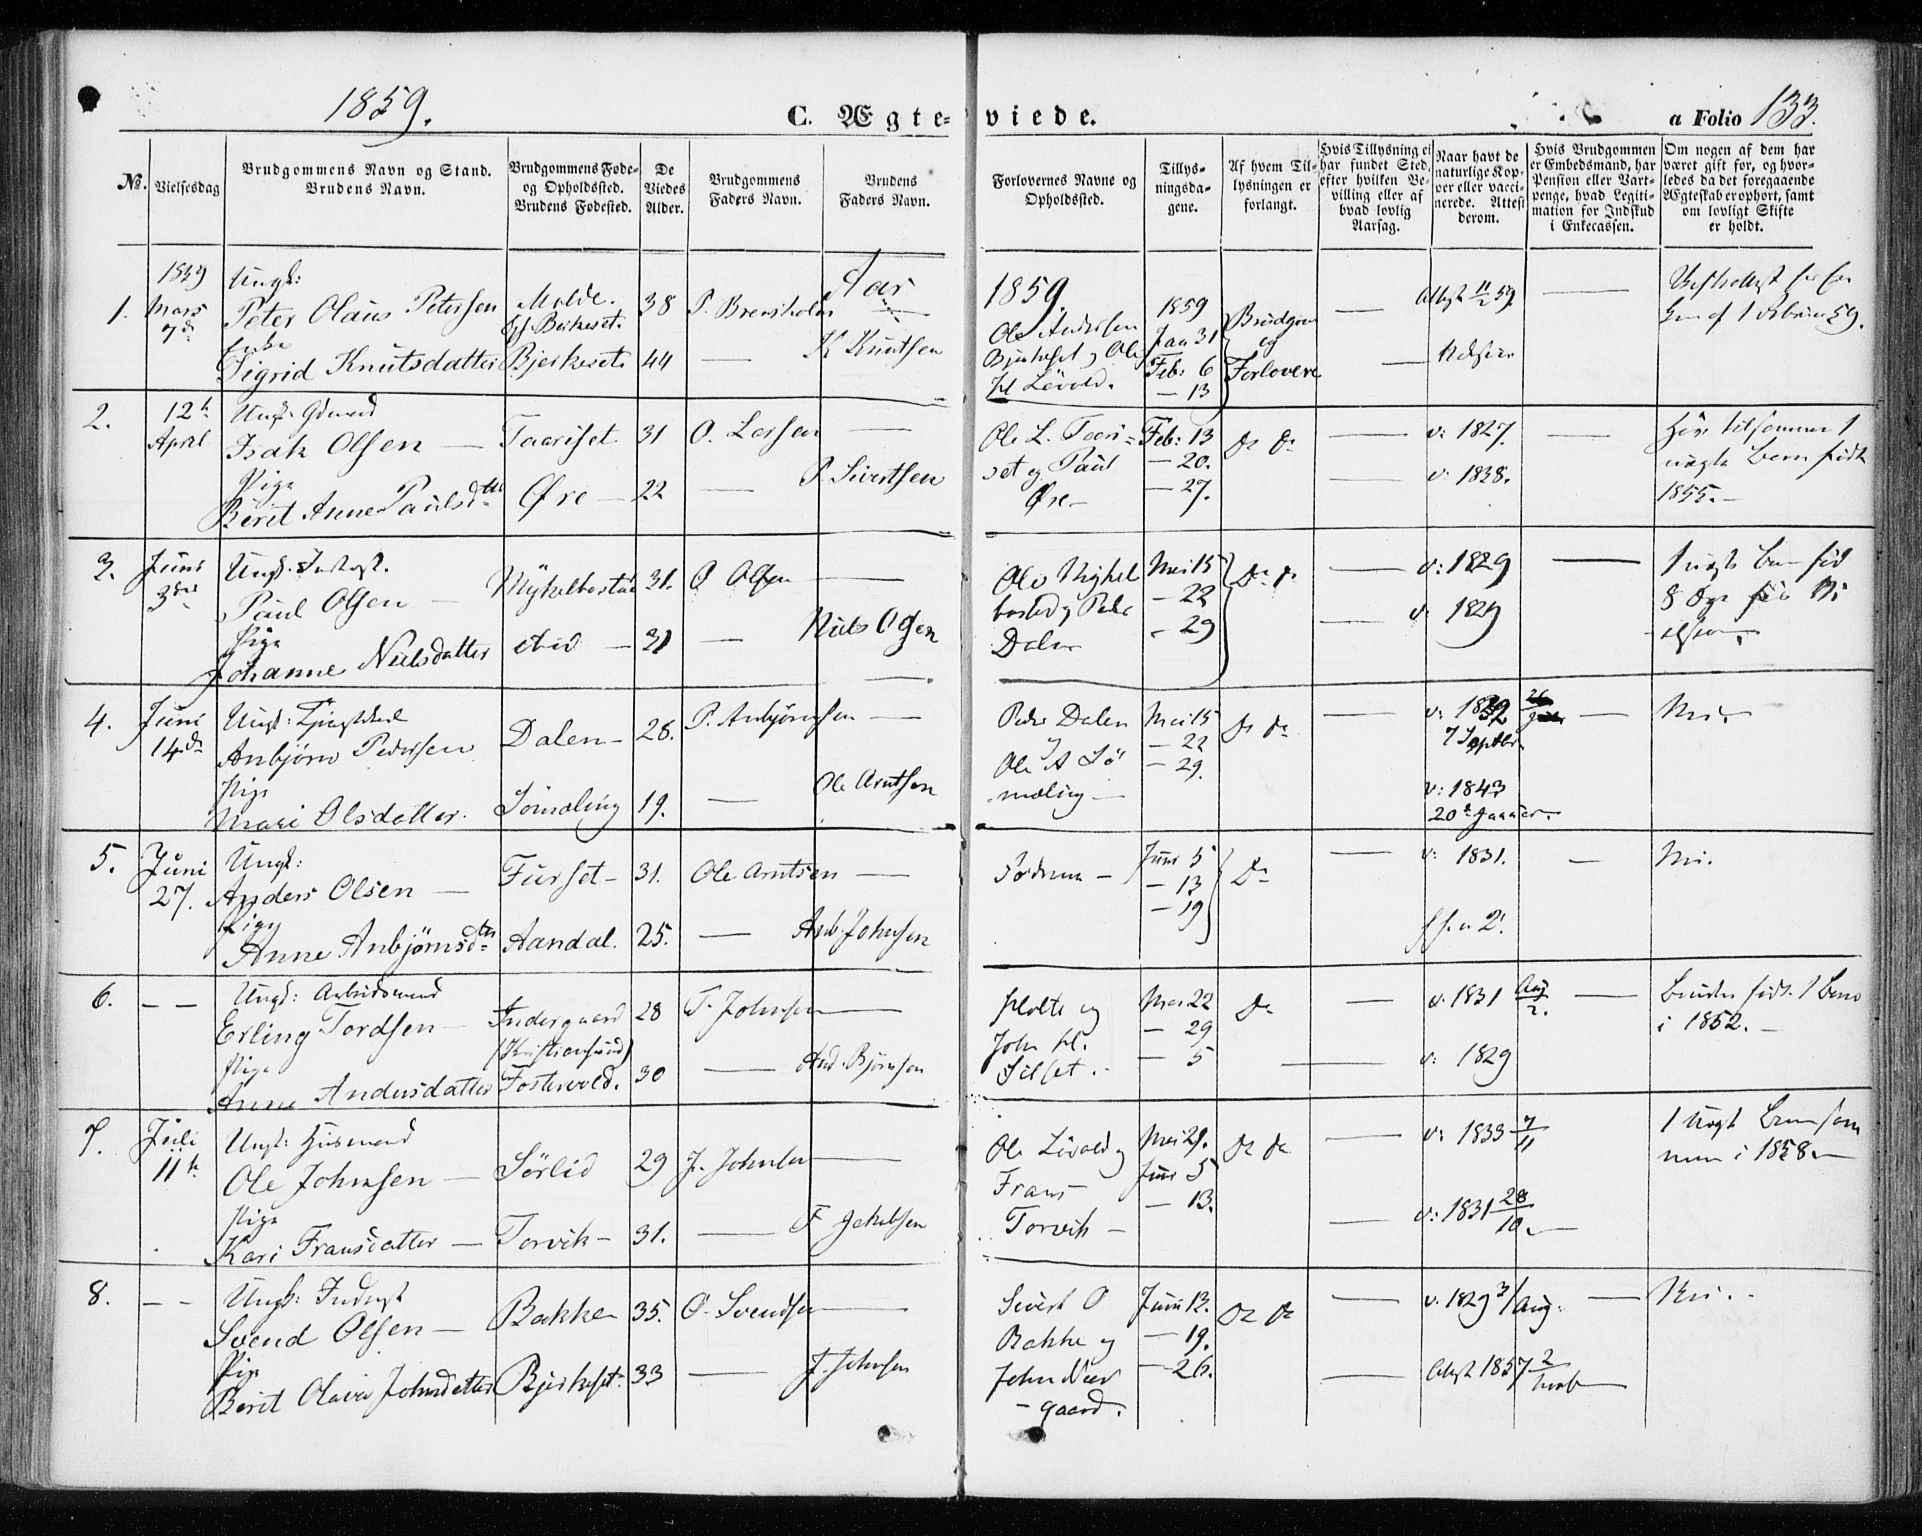 1859.
C. Ægte-
viede.
a Folio 133.
No.
Vielsesdag
Brudgommens Navn og Stand.
Brudens Navn.
Brudgommens Føde-
og Opholdssted.
Brudens Fødested.
De
Viedes
Alder.
Brudgommens
Faders Navn.
Brudens
Faders Navn.
Forlovernes Navne og
Opholdssted.
Tillys-
ningsda-
gene.
Af hvem Til-
lysningen er
forlangt.
Hvis Tillysning ei
har fundet Sted,
efter hvilken Be-
villing eller af
hvad lovlig
Aarsag.
Naar havt de
naturlige Kop-
per eller vacci-
nerede. Attest
derom.
Hvis Brudgommen
er Embedsmand, har
Pension eller Vart-
penge, hvad Legiti-
mation for Indskud
i Enkecassen.
Om nogen af dem har
været gift før, og hvor-
ledes da det foregaaende
Ægteskab er ophørt, samt
om lovligt Skifte
er holdt.
Aar
1859.
1.
1859
Mars
7de
Ungk:
Peter Olaus Petersen
Enke
Sigrid Knutsdatter
Molde.
Bjerkeset
38
44
—
K Knutsen
Ole Andersen
Bjerkeset og Ole
Løvold.
1859
Jan 31
Feb: 6
— 13
Brudgom
og
Forlovere
—
Attest 11/2 59.
—
2.
12te
April
Ungk: Gdmand
Isak Olsen —
Pige
Berit Anne Paulsdtr
Taariset
Øre —
31
22
O. Larsen
—
P. Sivertsen
Ole L. Taari-
set og Paul
Øre —
Feb: 13
— 20.
— 27.
Do Do
—
v: 1827.
v: 1838.
—
1855. —
3.
Juni
3die
Ungk:
Paul Olsen —
Pige
Johanne Nielsdatter
Mykelbostad
31.
31
O Olsen
—
Niels Olsen
Ole Mykel
bostad og Peder
Dalen
Mai 15
— 22
— 29
Do Do
—
v: 1829
v: 1829
—
4.
Juni
14de
Ungk:
Anbjørn Pedersen
Pige
Mari Olsdatter.
Dalen —
Sømeling
28.
19.
P. Anbjørnsen
—
Ole Arntsen
Peder Dalen
Ole A Sø
meling —
Mai 15
— 22
— 29.
Do Do
—
7 Septbr
v: 1843
20de Januar.
—
Nei.
5.
Juni
27.
Ungk:
Anders Olsen —
Pige
Anne Anbjørnsdtr
Furset —
Aandal.
31.
25.
Ole Arntsen
—
Anb. Johnsen
Juni 5
— 13
— 19
Do
—
v: 1831.
—
Nei.
6.
— —
Ungk: Arbeidsmand
Erling Tordsen —
Pige
Anne Andersdatter
Indergaard
(Kristiansund)
Fostervold.
28
30
T. Johnsen
—
And. Bjørnsen
Holte og
John
Silset.
Mai 22
— 29
— 5
Do
—
v: 1831 Aug/2.
v: 1829
—
Bruden født 1 Barn
i 1852. —
7.
Juli
11te
Ungk: Husmand
Ole Johnsen —
Pige
Kari Fransdatter —
Sørlid
Torvik —
29
31.
J. Johnsen
—
F Jakobsen
Ole Løvold og
Frans
Torvik —
Mai 29.
Juni 5
— 13.
Do Do
—
v: 1833 7/11
v: 1831 28/10
1 uægt Barn sam
men i 1858. —
8.
— —
Ungk: Inderst
Svend Olsen —
Pige
Berit Olava Johnsdatter
Bakke
Bjerkeset
35.
33
O. Svendsen
—
J. Johnsen
Sivert O
Bakke og
John Nær
— gaard.
Juni 12.
— 19.
— 26.
Do Do
—
v. 1829 3/Aug:
Attest 1857 2/
—
Nei.